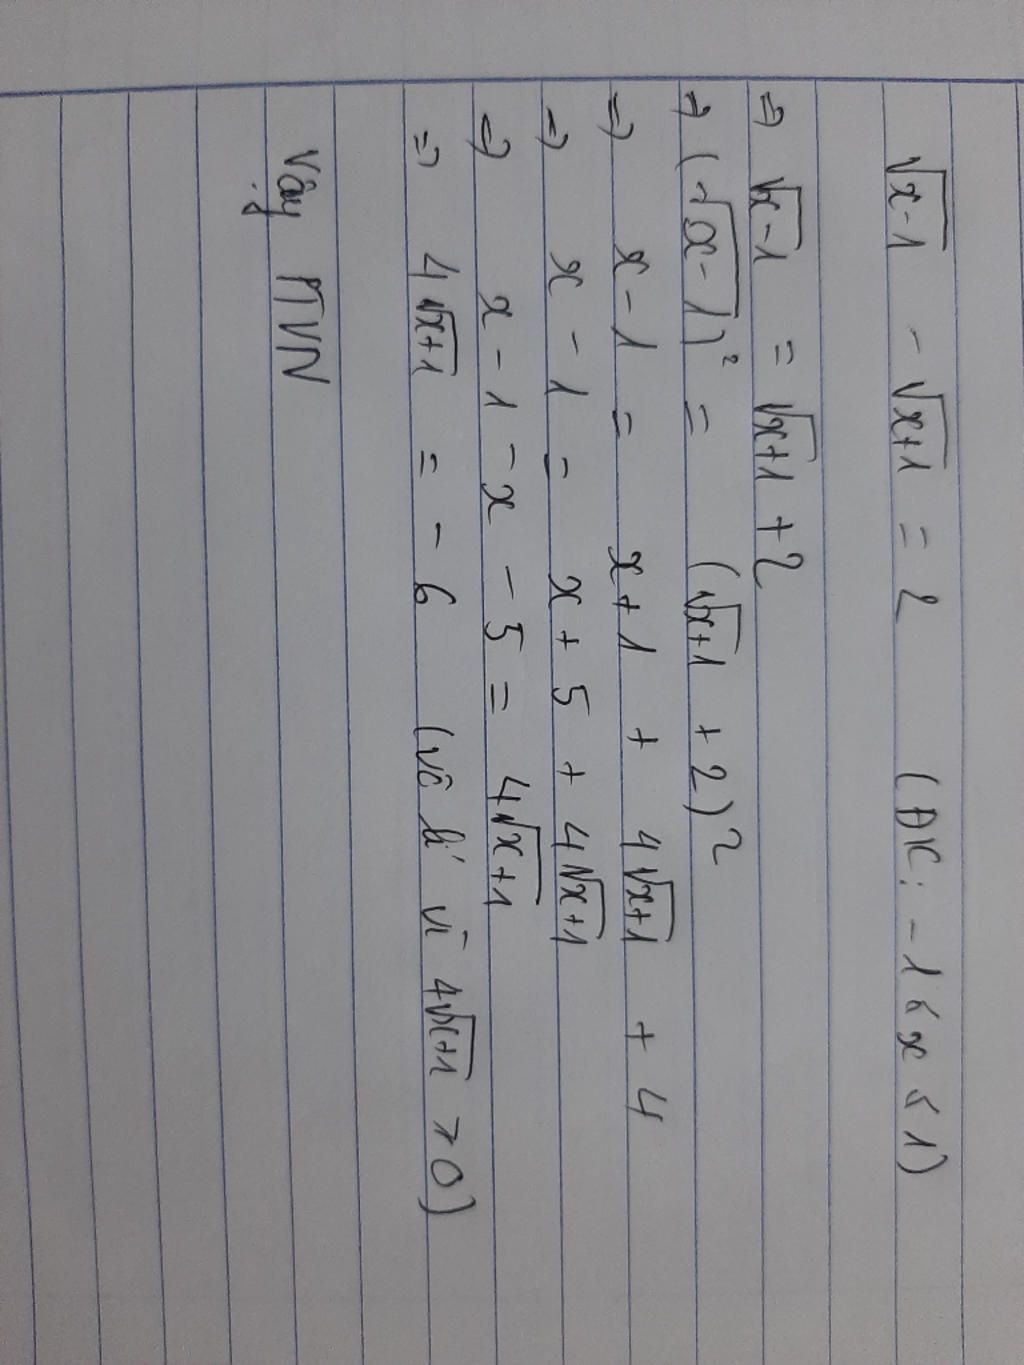 √x-1 - √x+1 = 2 (ĐK: -1 ≤ x ≤ 1)
=> √x-1 = √x+1 + 2
=> (√x-1)² = (√x+1 + 2)²
=> x - 1 = x+1 + 4√x+1 + 4
=> x - 1 = x + 5 + 4√x+1
=> x - 1 - x - 5 = 4√x+1
=> 4√x+1 = - 6 (vô lí vì 4√x+1 ≥ 0)
Vậy PTVN